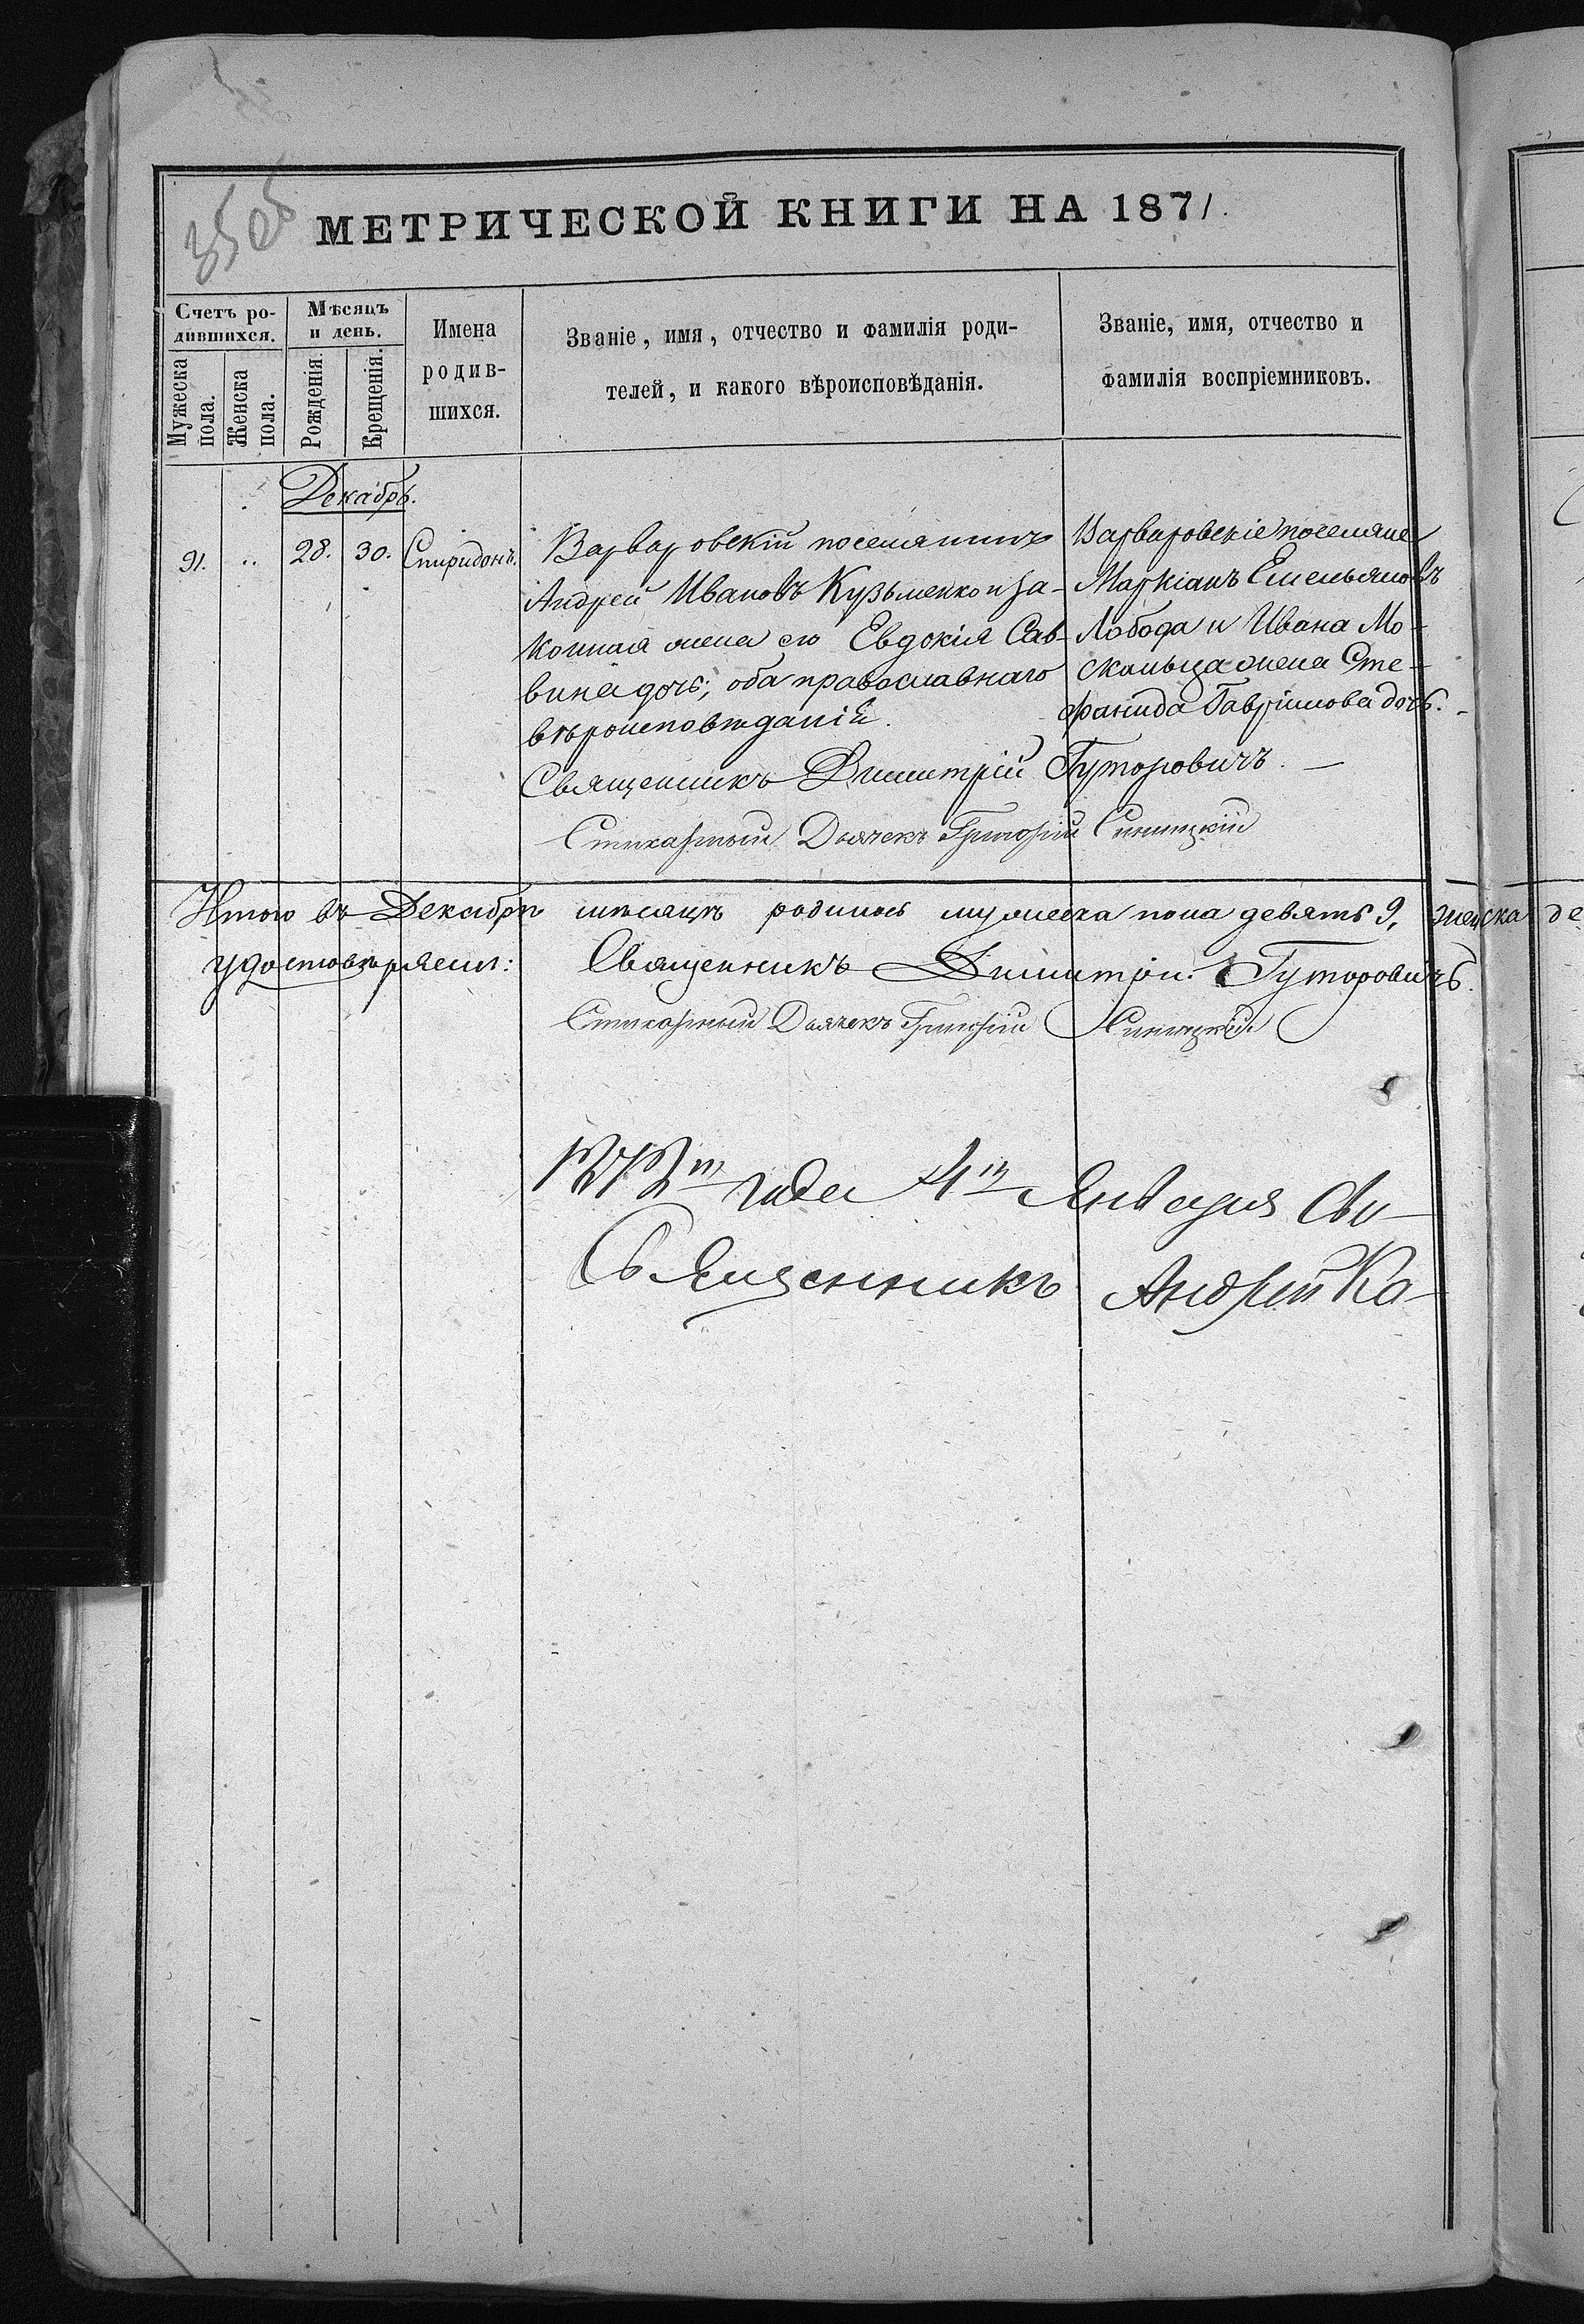 35об
МЕТРИЧЕСКОЙ КНИГИ НА 1871.
Счетъ ро-
дившихся.
Мужеска
пола.
Женска
пола.
Мѣсяцъ
и день.
Рожденія.
Крещенія.
Имена
родив-
шихся.
Званіе, имя, отчество и фамилія роди-
телей, и какого вѣроисповѣданія.
Званіе, имя, отчество и
фамилія воспріемниковъ.
Декабрь.
91. .. 28. 30. Спиридонъ.
Варваровскій поселянинъ
Андрей Ивановъ Кузьменко и за-
конная жена его Евдокія Сав-
вина дочь; оба православнаго
вѣроисповѣданій.
Варваровскіе поселяне
Маркіанъ Емельяновъ
Лобода и Ивана Мо-
скальца жена Сте-
фанида Гавріилова дочь.
Священникъ Димитрій Гуторовичъ.
Стихарный Дьячекъ Григорій Синицкій
Итого въ Декабрѣ мѣсяцѣ родилось мужеска пола девять 9, женска де
удостовѣряемъ: Священникъ Димитрій Гуторовичъ.
Стихарный Дьячекъ Григорій Синицкій
1872го года 4го Января Сви-
Священникъ Андрей Ка-